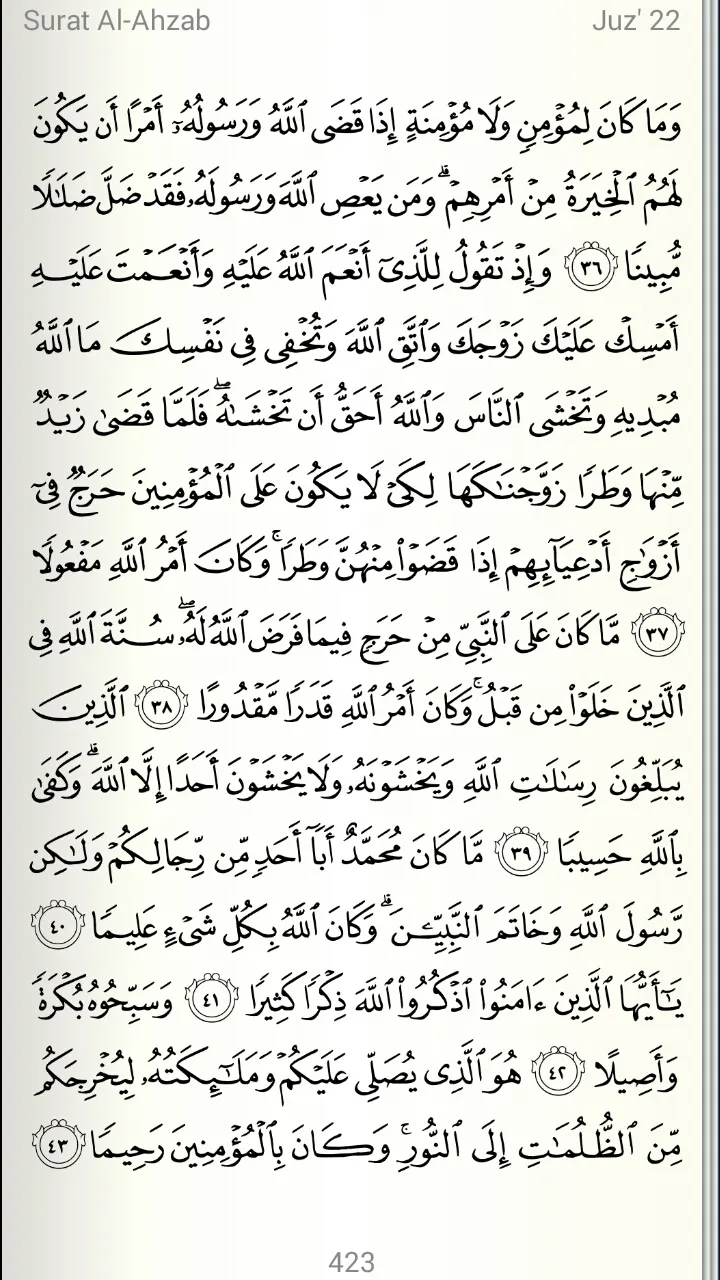 Surat Al-Ahzab Juz' 22
وَمَا كَانَ لِمُؤْمِنٍ وَلَا مُؤْمِنَةٍ إِذَا قَضَى ٱللَّهُ وَرَسُولُهُۥٓ أَمْرًا أَن يَكُونَ
لَهُمُ ٱلْخِيَرَةُ مِنْ أَمْرِهِمْ ۗ وَمَن يَعْصِ ٱللَّهَ وَرَسُولَهُۥ فَقَدْ ضَلَّ ضَلَٰلًا
مُّبِينًا ٣٦ وَإِذْ تَقُولُ لِلَّذِىٓ أَنْعَمَ ٱللَّهُ عَلَيْهِ وَأَنْعَمْتَ عَلَيْهِ
أَمْسِكْ عَلَيْكَ زَوْجَكَ وَٱتَّقِ ٱللَّهَ وَتُخْفِى فِى نَفْسِكَ مَا ٱللَّهُ
مُبْدِيهِ وَتَخْشَى ٱلنَّاسَ وَٱللَّهُ أَحَقُّ أَن تَخْشَىٰهُ ۖ فَلَمَّا قَضَىٰ زَيْدٌ
مِّنْهَا وَطَرًا زَوَّجْنَٰكَهَا لِكَىْ لَا يَكُونَ عَلَى ٱلْمُؤْمِنِينَ حَرَجٌ فِىٓ
أَزْوَٰجِ أَدْعِيَآئِهِمْ إِذَا قَضَوْا۟ مِنْهُنَّ وَطَرًا ۚ وَكَانَ أَمْرُ ٱللَّهِ مَفْعُولًا
٣٧ مَّا كَانَ عَلَى ٱلنَّبِىِّ مِنْ حَرَجٍ فِيمَا فَرَضَ ٱللَّهُ لَهُۥ ۖ سُنَّةَ ٱللَّهِ فِى
ٱلَّذِينَ خَلَوْا۟ مِن قَبْلُ ۚ وَكَانَ أَمْرُ ٱللَّهِ قَدَرًا مَّقْدُورًا ٣٨ ٱلَّذِينَ
يُبَلِّغُونَ رِسَٰلَٰتِ ٱللَّهِ وَيَخْشَوْنَهُۥ وَلَا يَخْشَوْنَ أَحَدًا إِلَّا ٱللَّهَ ۗ وَكَفَىٰ
بِٱللَّهِ حَسِيبًا ٣٩ مَّا كَانَ مُحَمَّدٌ أَبَآ أَحَدٍ مِّن رِّجَالِكُمْ وَلَٰكِن
رَّسُولَ ٱللَّهِ وَخَاتَمَ ٱلنَّبِيِّـۧنَ ۗ وَكَانَ ٱللَّهُ بِكُلِّ شَىْءٍ عَلِيمًا ٤٠
يَٰٓأَيُّهَا ٱلَّذِينَ ءَامَنُوا۟ ٱذْكُرُوا۟ ٱللَّهَ ذِكْرًا كَثِيرًا ٤١ وَسَبِّحُوهُ بُكْرَةً
وَأَصِيلًا ٤٢ هُوَ ٱلَّذِى يُصَلِّى عَلَيْكُمْ وَمَلَٰٓئِكَتُهُۥ لِيُخْرِجَكُم
مِّنَ ٱلظُّلُمَٰتِ إِلَى ٱلنُّورِ ۚ وَكَانَ بِٱلْمُؤْمِنِينَ رَحِيمًا ٤٣
423